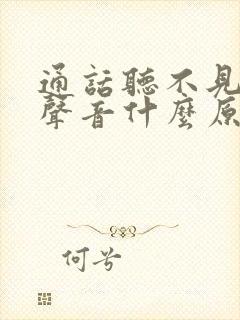 通話聽不見
聲音什麼原
何兮